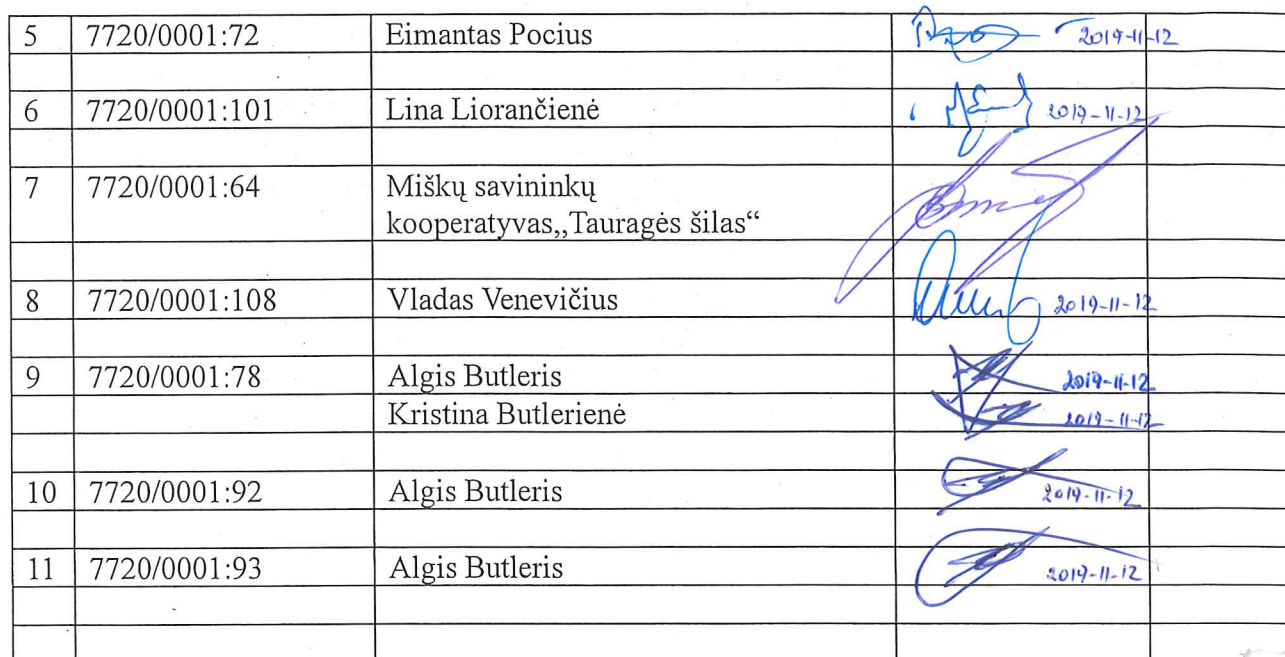 5 7720/0001:72 Eimantas Pocius 2019-11-12
6 7720/0001:101 Lina Liorančienė 2019-11-12
7 7720/0001:64 Miškų savininkų
kooperatyvas,,Tauragės šilas“
8 7720/0001:108 Vladas Venevičius 2019-11-12
9 7720/0001:78 Algis Butleris 2019-11-12
Kristina Butlerienė 2019-11-12
10 7720/0001:92 Algis Butleris 2019-11-12
11 7720/0001:93 Algis Butleris 2019-11-12